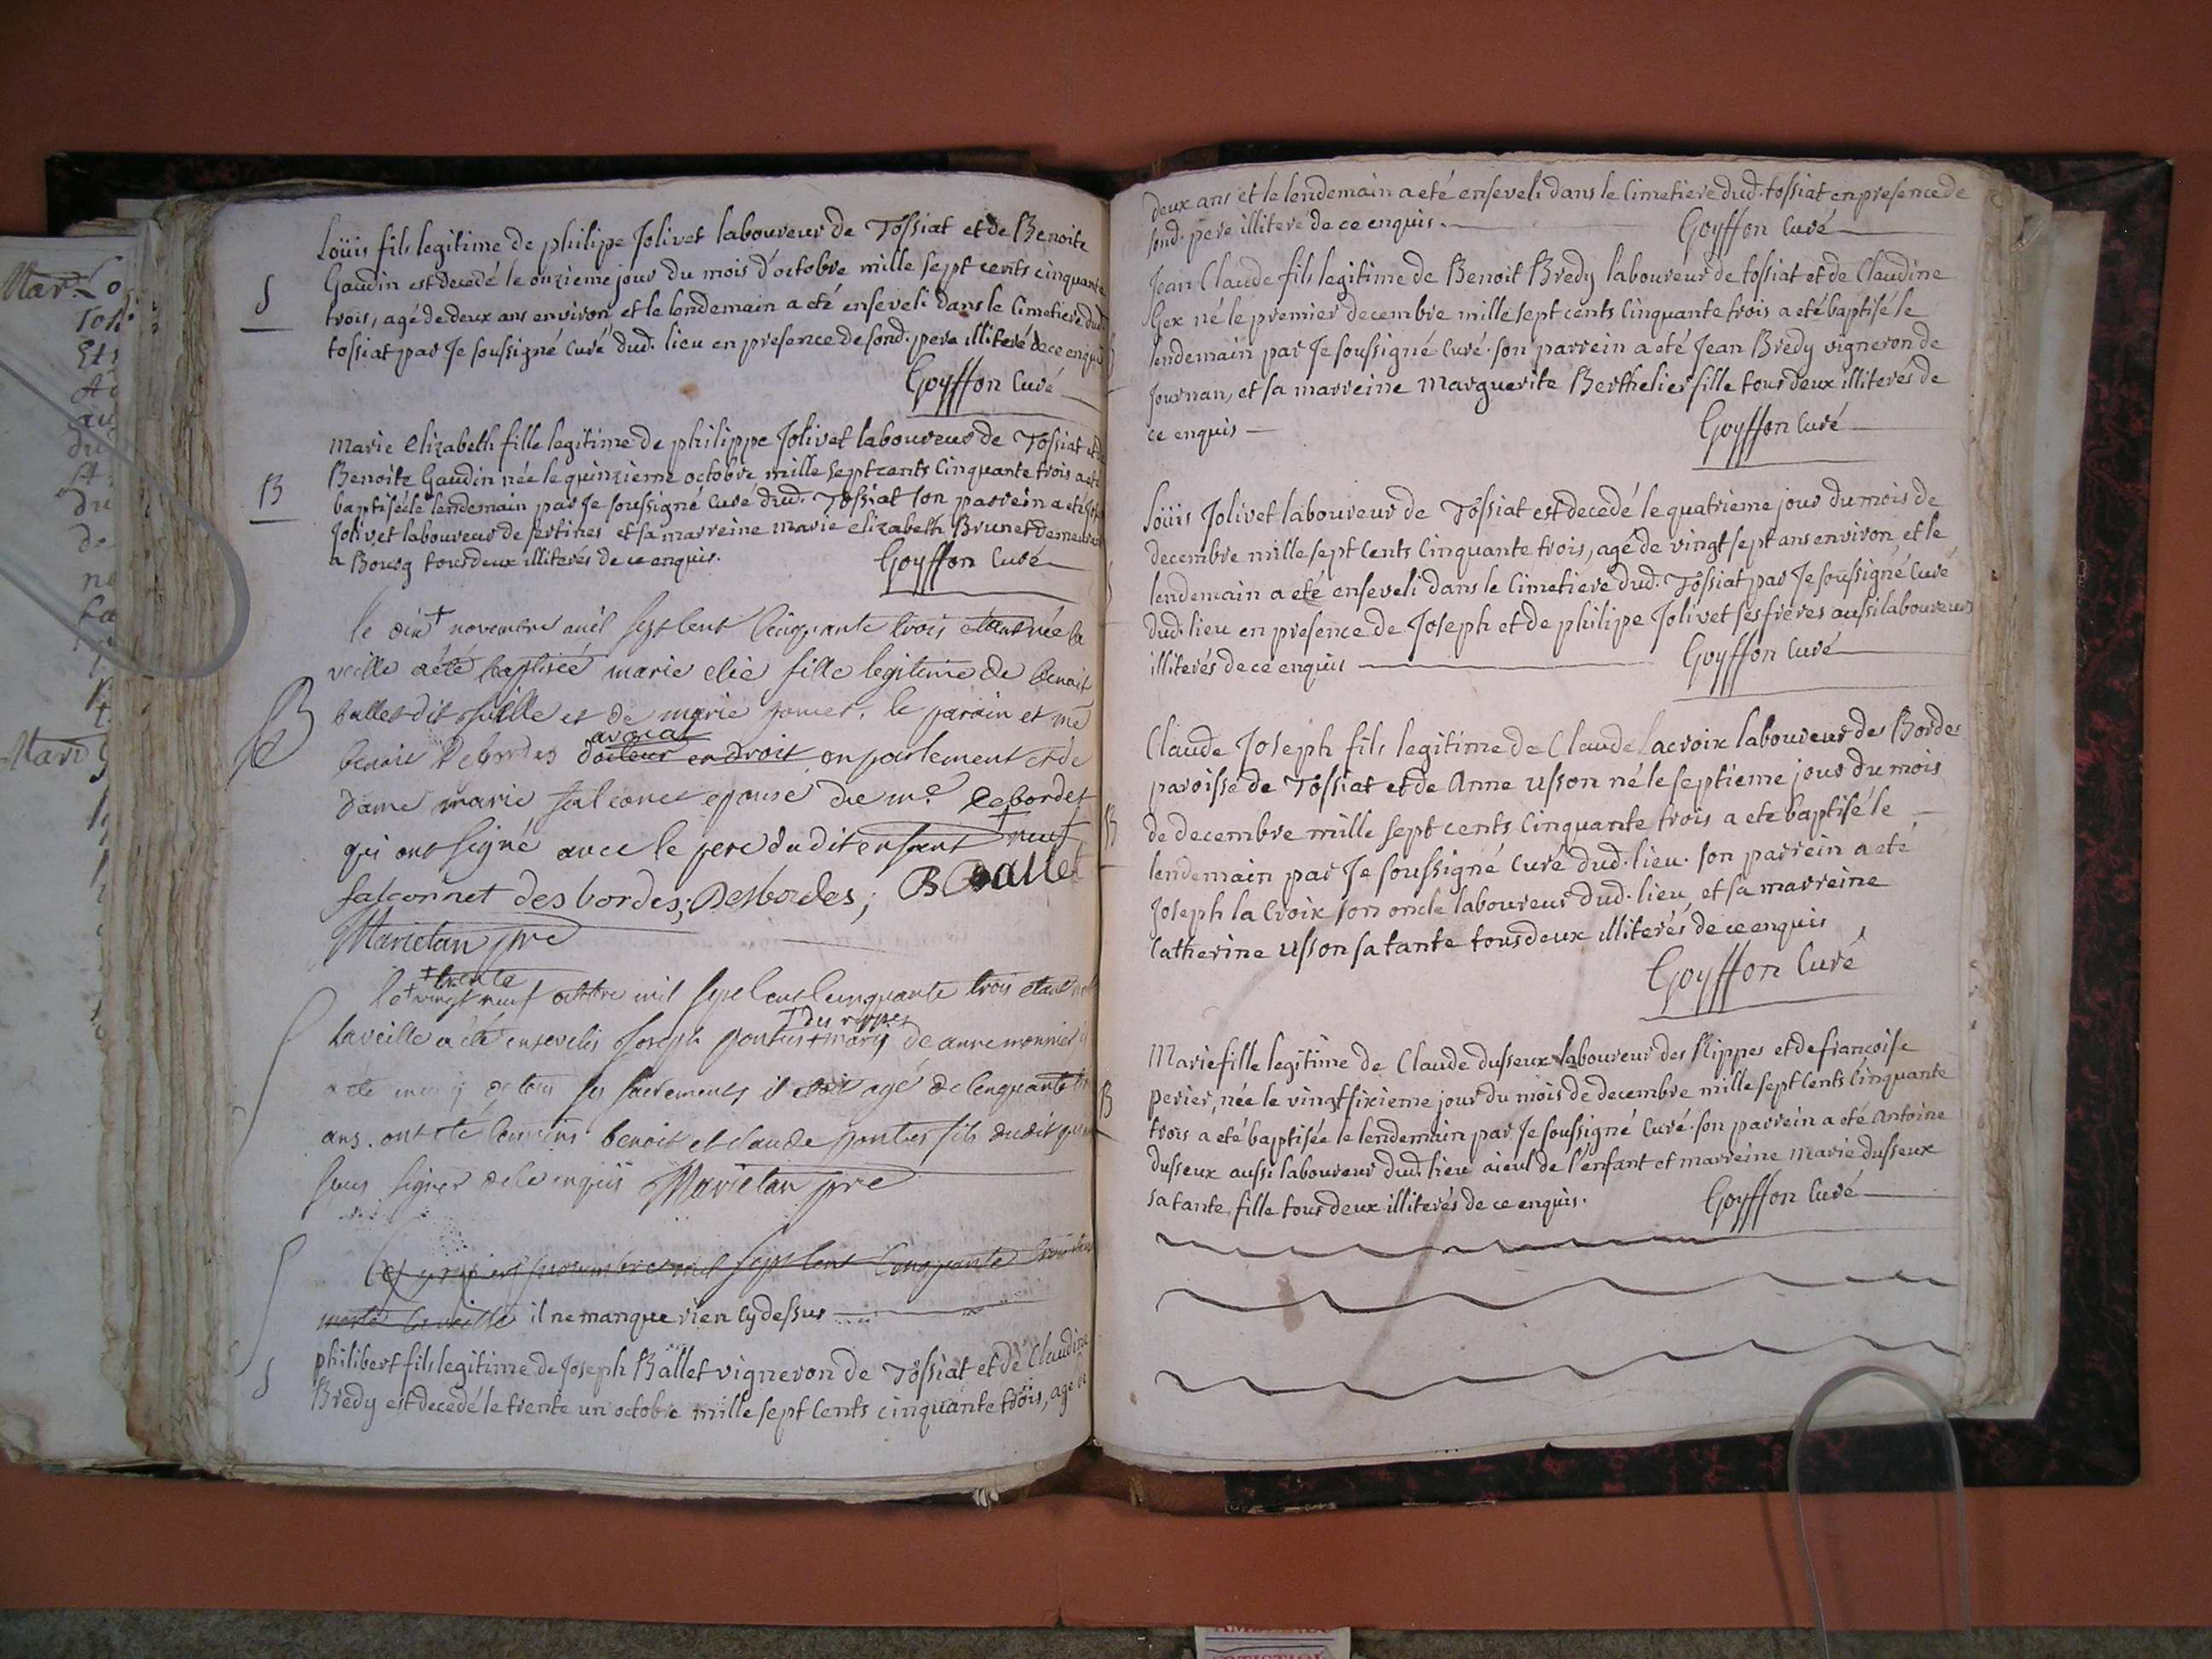 Loüis fils legitime de philipe Jolivet laboureur de Tossiat et de Benoite
S
Gaudin est decedé le onzieme jour du mois d'octobre mille sept cents cinquante
trois, agé de deux ans environ et le lendemain a eté enseveli dans le Cimetiere dud.
tossiat par Je soussigné Curé dud. lieu en presence de sond. pere illiteré de ce enquis
Goyffon Curé
Marie Elizabeth fille legitime de philippe Jolivet laboureur de Tossiat et de
B
Benoite Gaudin née le quinzieme octobre mille sept cents Cinquante trois a eté
baptisée le lendemain par Je soussigné Curé dud. Tossiat son parrein a eté
Jolivet laboureur de sertines et sa marreine marie elizabeth Brunet demeurant
a Bourg tous deux illiterés de ce enquis.
Goyffon Curé
le dix novembre mil sept cent Cinquante trois etant née la
veille a été baptisée marie elie fille legitime de benoit
B
ballet dit et de marie le parain et me
avocat
benoit Debordes docteur en droit en parlement et de
dame marie falconet epouse du me Debordes
qui ont signé avec le pere dudit enfant neuf
falconnet des bordes; Desbordes; B Ballet
Marietan pre
trente
S
le vingt neuf octobre mil sept cent cinquante trois etant
des rippes
la veille a été enseveli Joseph pontus mary de anne monnier
a été muny de tous ses sacrements il etoit agé de cinquante
ans. ont été temoins benoit et claude pontus fils dudit
sans signer de ce enquis Marietan pre
S
Le novembre mil sept cent Cinquante trois
morte la veille il ne manque rien cy dessus
philibert fils legitime de Joseph Ballet vigneron de Tossiat et de Claudine
S
Bredy est decedé le trente un octobre mille sept Cents cinquante trois, agé de
deux ans et le lendemain a eté enseveli dans le Cimetiere dud. tossiat en presence de
sond. pere illiteré de ce enquis.
Goyffon Curé
Jean Claude fils legitime de Benoit Bredy laboureur de tossiat et de Claudine
Gex né le premier decembre mille sept cents Cinquante trois a eté baptisé le
lendemain par Je soussigné Curé. son parrein a eté Jean Bredy vigneron de
Journan, et sa marreine Marguerite Berthelier fille tous deux illiterés de
ce enquis
Goyffon Curé
Loüis Jolivet laboureur de Tossiat est decedé le quatrieme jour du mois de
decembre mille sept Cents Cinquante trois, agé de vingt sept ans environ, et le
lendemain a eté enseveli dans le Cimetiere dud. Tossiat par Je soussigné Curé
dud. lieu en presence de Joseph et de philipe Jolivet ses freres aussi laboureurs
illiterés de ce enquis
Goyffon Curé
Claude Joseph fils legitime de Claude Lacroix laboureur des Bordes
paroisse de Tossiat et de Anne Usson né le septieme jour du mois
B
de decembre mille sept cents Cinquante trois a ete baptisé le
lendemain par Je soussigné Curé dud. lieu. son parrein a eté
Joseph la Croix son oncle laboureur dud. lieu, et sa marreine
Catherine Usson sa tante tous deux illiterés de ce enquis
Goyffon Curé
Marie fille legitime de Claude dusseux laboureur des Rippes et de francoise
B
perier, née le vingt sixieme jour du mois de decembre mille sept Cents Cinquante
trois a eté baptisée le lendemain par Je soussigné Curé. son parrein a eté Antoine
dusseux aussi laboureur dud. lieu aieul de l'enfant et marreine Marie dusseux
sa tante, fille tous deux illiterés de ce enquis.
Goyffon Curé